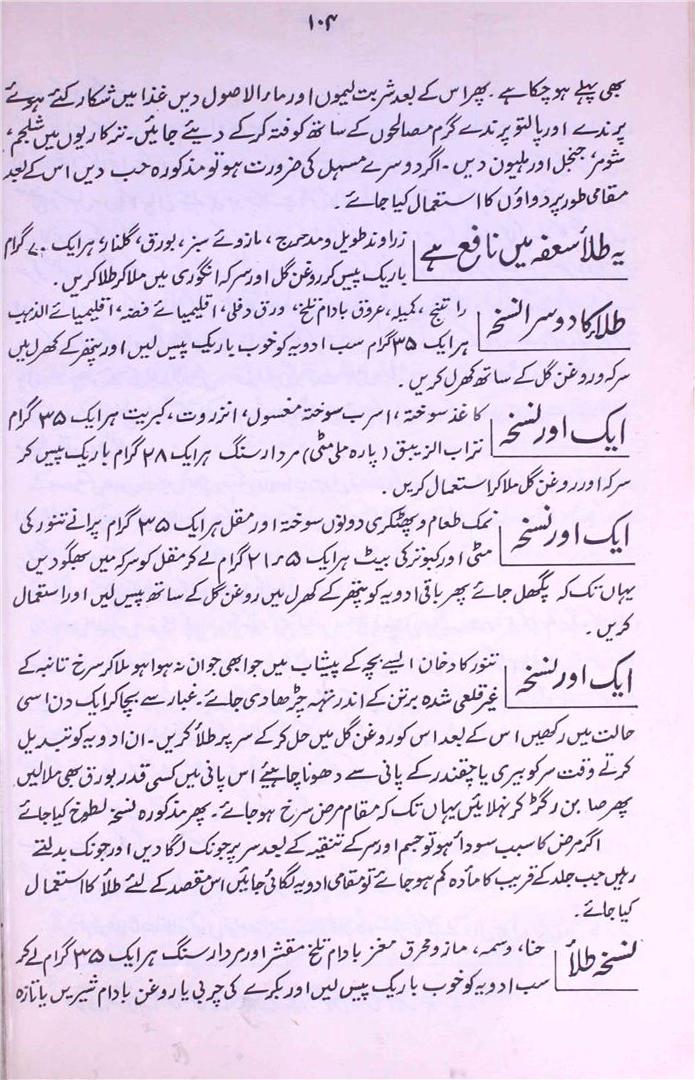 ۱۰۴
بھی پہلے ہوچکا ہے۔ پھر اس کے بعد شربت لیموں اور ماء الاصول دیں غذا میں شکار کئے ہوئے
پرندے اور پالتو پرندے گرم مصالحوں کے ساتھ کوفتہ کرکے دیئے جائیں۔ ترکاریوں میں شلجم،
شومر، جنجل اور ہلیون دیں۔ اگر دوسرے مسہل کی ضرورت ہو تو مذکورہ حب دیں اس کے بعد
مقامی طور پر دواؤں کا استعمال کیا جائے۔
یہ طلاء سعفہ میں نافع ہے
زراوند طویل و مدحرج، مازوئے سبز، بورق، گلنار ہر ایک ۷۰ گرام
باریک پیس کر روغن گل اور سرکہ انگوری میں ملاکر طلا کریں۔
طلاء کا دوسرا نسخہ
راتنج، کمیلہ، عروق بادام تلخ، ورق دفلی، اقلیمیائے فضہ، اقلیمیائے الذہب
ہر ایک ۳۵ گرام سب ادویہ کو خوب باریک پیس لیں اور پتھر کے کھرل میں
سرکہ و روغن گل کے ساتھ کھرل کریں۔
ایک اور نسخہ
کاغذ سوختہ، اسرب سوختہ مغسول، انزروت، کبریت ہر ایک ۳۵ گرام
تراب الزیبق (پارہ ملی مٹی) مردار سنگ ہر ایک ۲۸ گرام باریک پیس کر
سرکہ اور روغن گل ملاکر استعمال کریں۔
ایک اور نسخہ
نمک طعام و پھٹکری دونوں سوختہ اور مقل ہر ایک ۳۵ گرام پرانے تنور کی
مٹی اور کبوتر کی بیٹ ہر ایک ۲۱٫۵ گرام لے کر مقل کو سرکہ میں بھگو دیں
یہاں تک کہ پگھل جائے پھر باقی ادویہ کو پتھر کے کھرل میں روغن گل کے ساتھ پیس لیں اور استعمال
کریں۔
ایک اور نسخہ
تنور کا دخان ایسے بچہ کے پیشاب میں جو ابھی جوان نہ ہوا ہو ملاکر سرخ تانبہ کے
غیر قلعی شدہ برتن کے اندر تہہ چڑھا دی جائے۔ غبار سے بچاکر ایک دن اسی
حالت میں رکھیں اس کے بعد اس کو روغن گل میں حل کرکے سر پر طلاء کریں۔ ان ادویہ کو تبدیل
کرتے وقت سر کو بیری یا چقندر کے پانی سے دھونا چاہیئے اس پانی میں کسی قدر بورق بھی ملالیں
پھر صابن رگڑ کر نہلائیں یہاں تک کہ مقام مرض سرخ ہوجائے۔ پھر مذکورہ نسخہ لطوخ کیا جائے
اگر مرض کا سبب سوداء ہو تو جسم اور سر کے تنقیہ کے بعد سر پر جونک لگا دیں اور جونک بدلتے
رہیں جب جلد کے قریب کا مادہ کم ہوجائے تو مقامی ادویہ لگائی جائیں اس مقصد کے لئے طلاء کا استعمال
کیا جائے۔
نسخہ طلاء
حنا، وسمہ، مازو محرق مغز بادام تلخ مقشر اور مردار سنگ ہر ایک ۳۵ گرام لے کر
سب ادویہ کو خوب باریک پیس لیں اور بکرے کی چربی یا روغن بادام شیریں یا تازہ